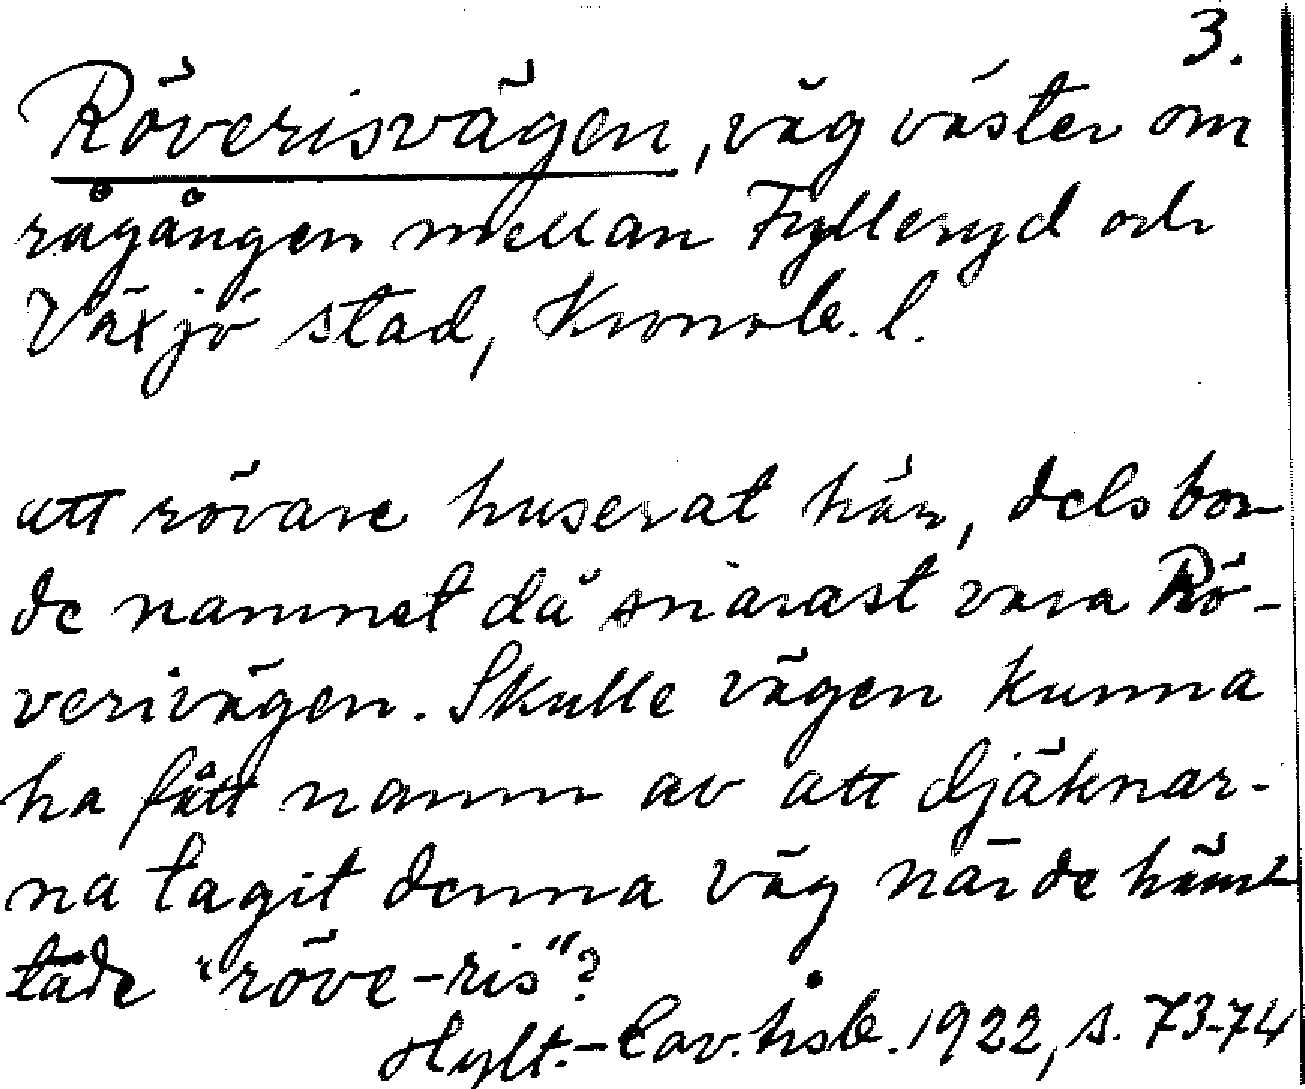 3.
Röverisvägen, väg väster om
rågången mellan Fylleryd och
Växjö stad, Kronob. l.
att rövare huserat här, dels bor
de namnet då snarast vara Rö-
verivägen. Skulle vägen kunna
ha fått namn av att djäknar-
na tagit denna väg när de häm
tade "röve-ris"?
Hylt.-Cav. årsb. 1922, s. 73-74